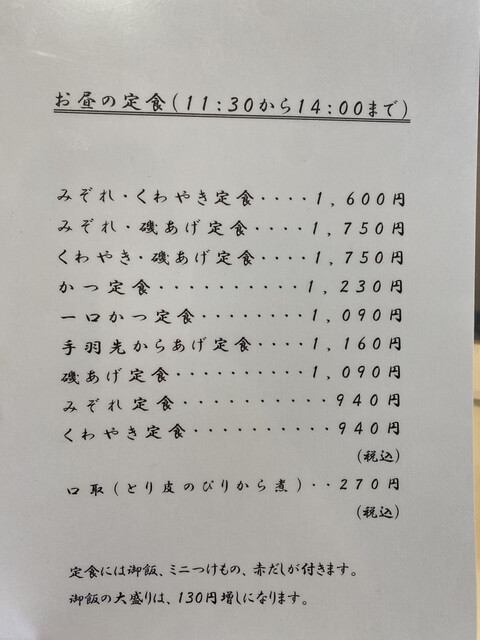 お昼の定食(11:30から14:00まで)
みぞれ・くわやき定食・・・・1,600円
みぞれ・磯あげ定食・・・・・1,750円
くわやき・磯あげ定食・・・・1,750円
かつ定食・・・・・・・・・・1,230円
一口かつ定食・・・・・・・・1,090円
手羽先からあげ定食・・・・・1,160円
磯あげ定食・・・・・・・・・1,090円
みぞれ定食・・・・・・・・・・940円
くわやき定食・・・・・・・・・940円
(税込)
口取(とり皮のぴりから煮)・・270円
(税込)
定食には御飯、ミニつけもの、赤だしが付きます。
御飯の大盛りは、130円増しになります。